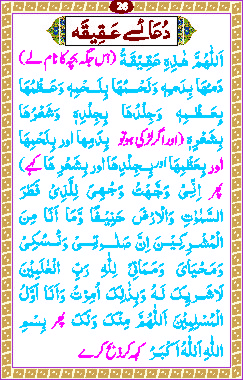 26
دُعَائے عَقِیْقَہ
اَللّٰهُمَّ هٰذِهٖ عَقِیْقَةُ (اس جگہ بچہ کا نام لے)
دَمُهَا بِدَمِهٖ وَلَحْمُهَا بِلَحْمِهٖ وَعَظْمُهَا
بِعَظْمِهٖ وَجِلْدُهَا بِجِلْدِهٖ وَشَعْرُهَا
بِشَعْرِهٖ (اور اگر لڑکی ہو تو بِدَمِهَا اور بِلَحْمِهَا
اور بِعَظْمِهَا اور بِجِلْدِهَا اور بِشَعْرِهَا کہے)
پھر اِنِّیْ وَجَّهْتُ وَجْهِیَ لِلَّذِیْ فَطَرَ
السَّمٰوٰتِ وَالْاَرْضَ حَنِیْفًا وَّمَا اَنَا مِنَ
الْمُشْرِکِیْنَ اِنَّ صَلَوٰتِیْ وَنُسُکِیْ
وَمَحْیَایَ وَمَمَاتِیْ لِلّٰهِ رَبِّ الْعٰلَمِیْنَ
لَاشَرِیْكَ لَهٗ وَبِذٰلِكَ اُمِرْتُ وَاَنَا اَوَّلُ
الْمُسْلِمِیْنَ اَللّٰهُمَّ مِنْكَ وَلَكَ پھر بِسْمِ
اللّٰهِ اَللّٰهُ اَکْبَرُ کہہ کر ذبح کرے